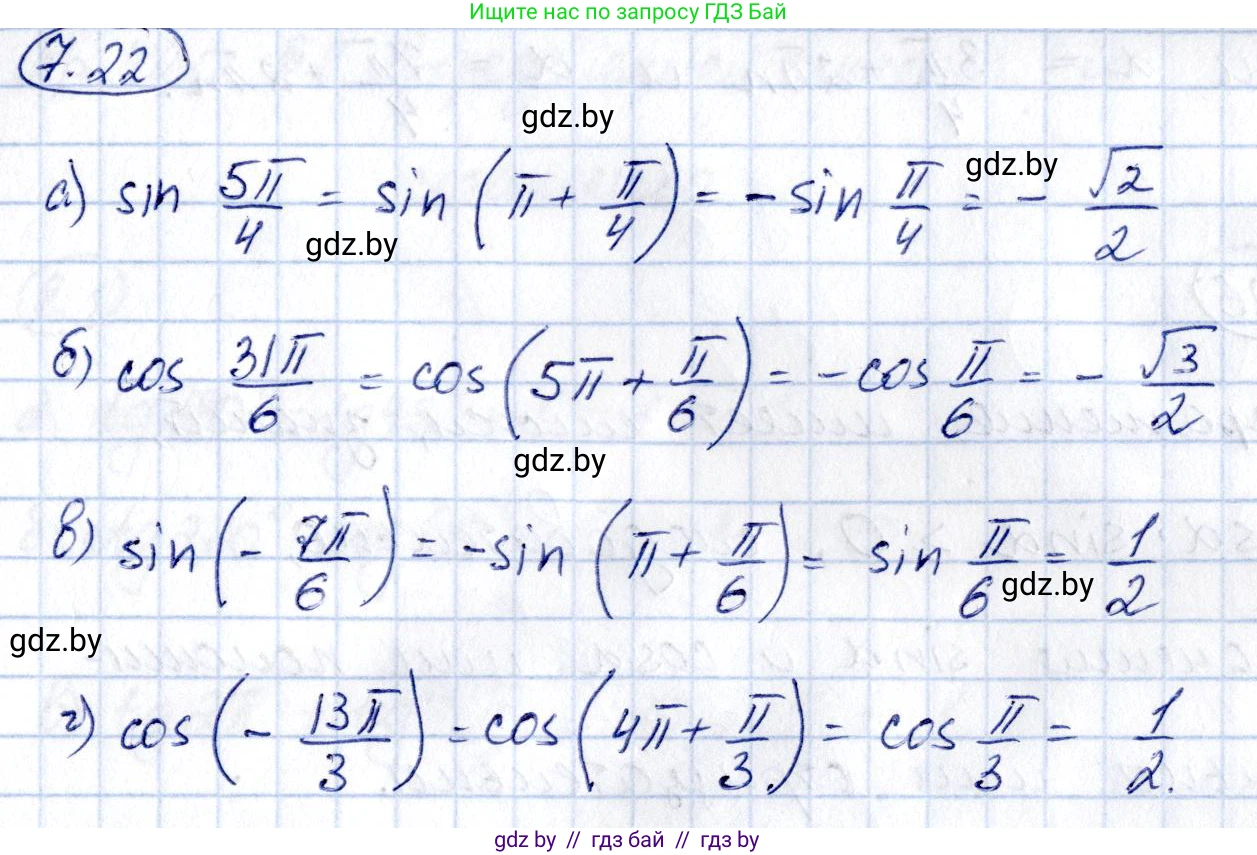 Ищите нас по запросу ГДЗ Бай
7.22
gdz.by
а) sin 5π/4 = sin (π + π/4) = - sin π/4 = - √2/2
gdz.by
gdz.by
б) cos 31π/6 = cos (5π + π/6) = - cos π/6 = - √3/2
gdz.by
в) sin (- 7π/6) = - sin (π + π/6) = sin π/6 = 1/2
gdz.by
gdz.by
г) cos (- 13π/3) = cos (4π + π/3) = cos π/3 = 1/2.
gdz.by // гдз бай // гдз by